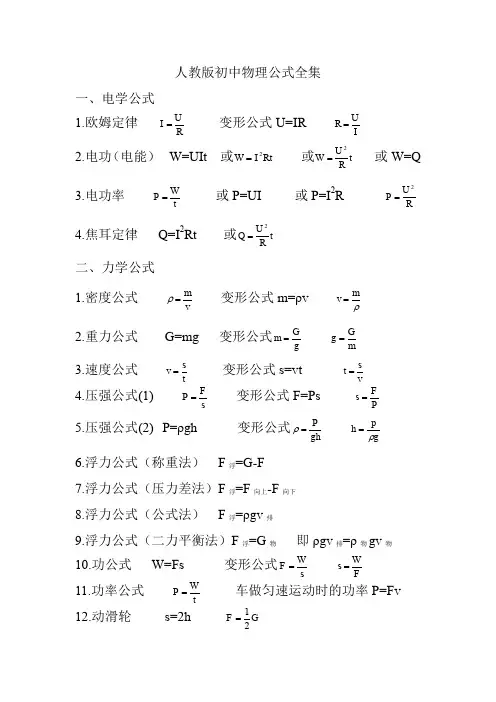 人教版初中物理公式全集
一、电学公式
1.欧姆定律 I=U/R 变形公式 U=IR R=U/I
2.电功（电能） W=UIt 或W=I²Rt 或W=U²/R t 或 W=Q
3.电功率 P=W/t 或 P=UI 或 P=I²R P=U²/R
4.焦耳定律 Q=I²Rt 或Q=U²/R t
二、力学公式
1.密度公式 ρ=m/v 变形公式 m=ρv v=m/ρ
2.重力公式 G=mg 变形公式m=G/g g=G/m
3.速度公式 v=s/t 变形公式 s=vt t=s/v
4.压强公式(1) P=F/s 变形公式 F=Ps s=F/P
5.压强公式(2) P=ρgh 变形公式ρ=P/gh h=p/ρg
6.浮力公式（称重法） F浮=G-F
7.浮力公式（压力差法）F浮=F向上-F向下
8.浮力公式（公式法） F浮=ρgv排
9.浮力公式（二力平衡法）F浮=G物 即 ρgv排=ρ物gv物
10.功公式 W=Fs 变形公式F=W/s s=W/F
11.功率公式 P=W/t 车做匀速运动时的功率 P=Fv
12.动滑轮 s=2h F=1/2 G